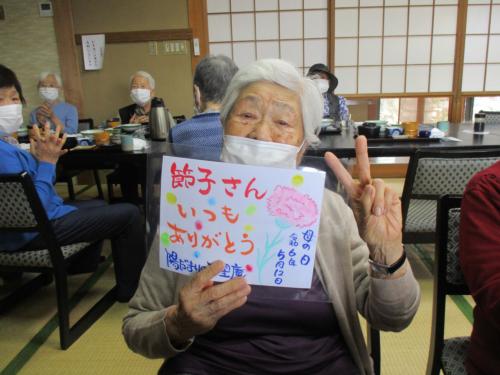 節子さん
いつも
ありがとう
母の日
令和6年
5月12日
陽だまり